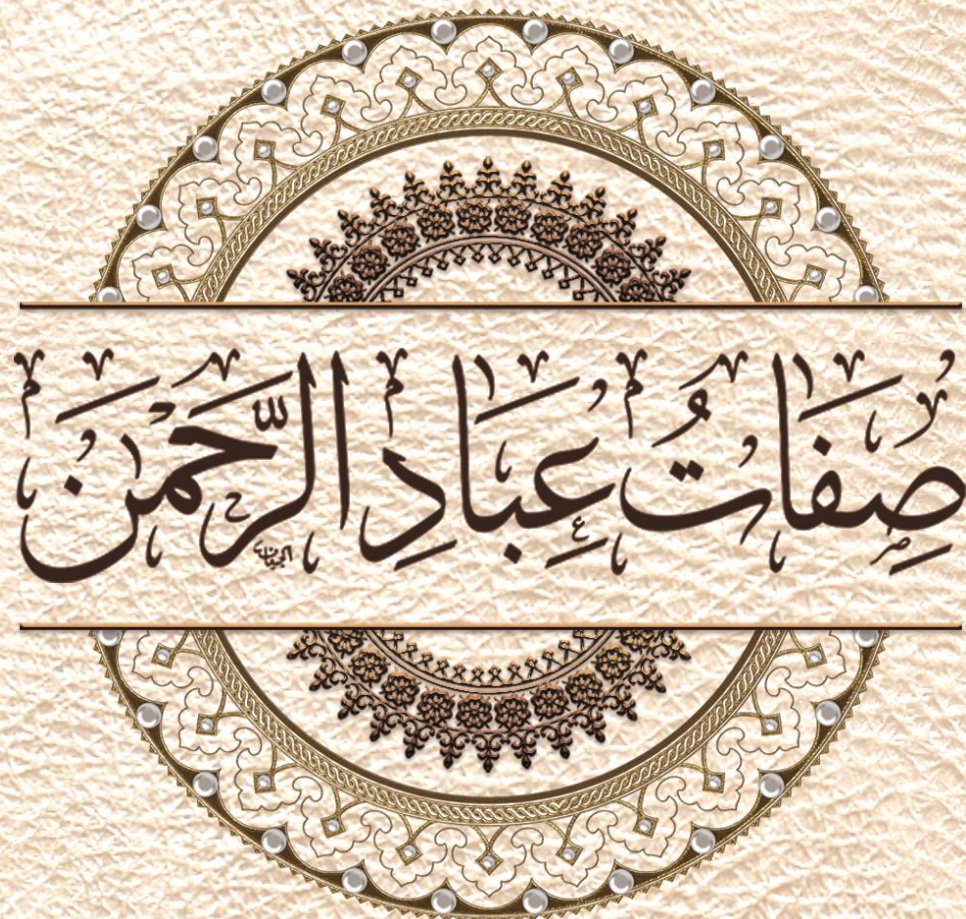 صِفَاتُ عِبَادِ الرَّحْمن